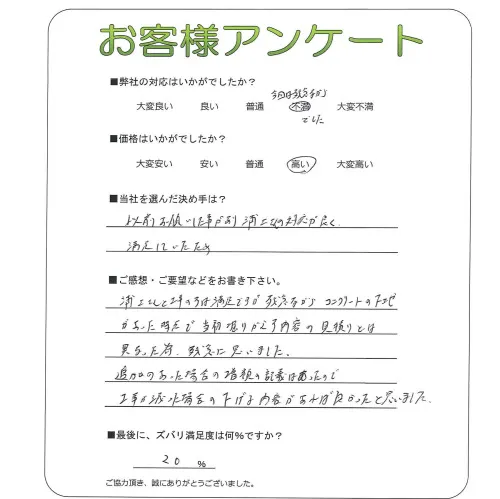 お客様アンケート
■弊社の対応はいかがでしたか?
今回は残念ながら
大変良い 良い 普通 不満 大変不満
でした
■価格はいかがでしたか?
大変安い 安い 普通 高い 大変高い
■当社を選んだ決め手は?
以前お願いした事があり 浦上さんの対応が良く、
満足していたため
■ご感想・ご要望などをお書き下さい。
浦上さんと工事の方は満足ですが 残念ながら コンクリートの下地
があった時点で当初 からす内容の見積りとは
異なった為、残念に思いました。
追加のあった場合の増額の記載はあったので
工事が減った場合の下げる内容があれば良かったと思いました。
■最後に、ズバリ満足度は何%ですか?
20 %
ご協力頂き、誠にありがとうございました。